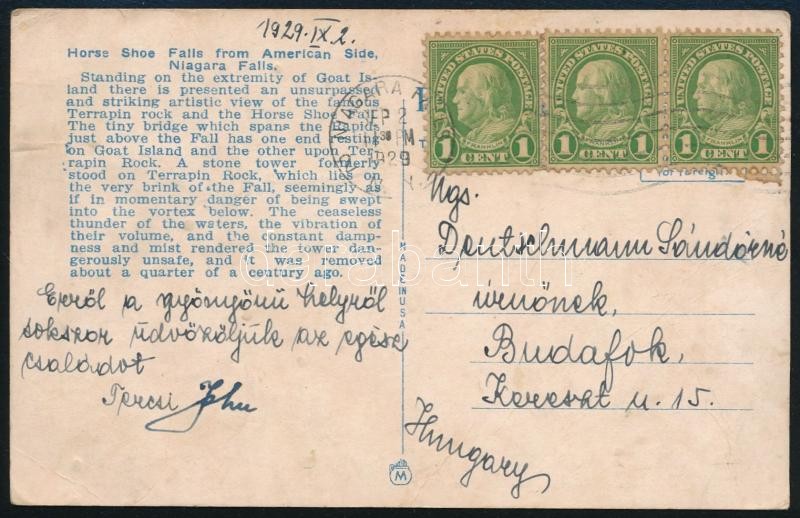 1929. IX. 2.
Horse Shoe Falls from American Side,
Niagara Falls.
Standing on the extremity of Goat Is-
land there is presented an unsurpassed
and striking artistic view of the famous
Terrapin rock and the Horse Shoe Fall.
The tiny bridge which spans the rapids
just above the Fall has one end resting
on Goat Island and the other upon Ter-
rapin Rock. A stone tower formerly
stood on Terrapin Rock, which lies on
the very brink of the Fall, seemingly as
if in momentary danger of being swept
into the vortex below. The ceaseless
thunder of the waters, the vibration of
their volume, and the constant damp-
ness and mist rendered the tower dan-
gerously unsafe, and it was removed
about a quarter of a century ago.
Erről a gyönyörű helyről
sokszor üdvözöljük az egész
családot
Tercsi John
NIAGARA
SEP 2
30 PM
1929
UNITED STATES POSTAGE
FRANKLIN
1 CENT 1
UNITED STATES POSTAGE
FRANKLIN
1 CENT 1
UNITED STATES POSTAGE
FRANKLIN
1 CENT 1
for foreign
MADE IN USA
Ngs.
Deutschmann Sándorné
úrnőnek,
Budafok,
Kereszt u. 15.
Hungary
M
darabanth